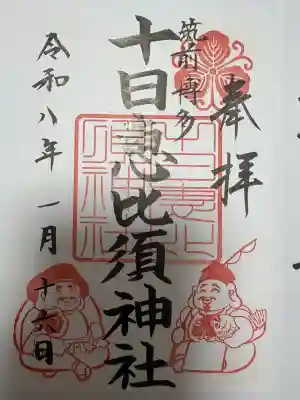 奉拝
筑前博多
十日恵比須神社
令和八年一月十六日